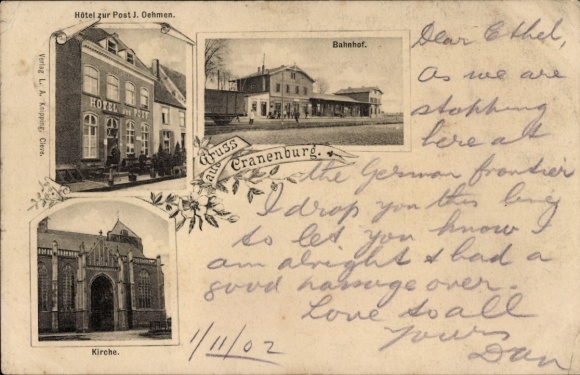 Hôtel zur Post J. Oehmen.
Verlag L. A. Kepping, Cleve.
HOTEL ZUR POST
Bahnhof.
Gruss
aus Cranenburg.
Kirche.
Dear Ethel,
As we are
stopping
here at
the German frontier
I drop you this line
to let you know I
am alright & had a
good passage over.
Love to all
yours
Dan
1/11/02